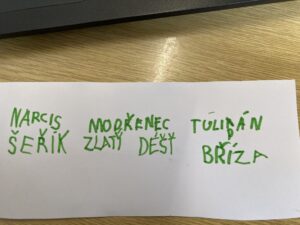 NARCIS MODŘENEC TULIPÁN
ŠEŘÍK ZLATÝ DÉŠŤ BŘÍZA